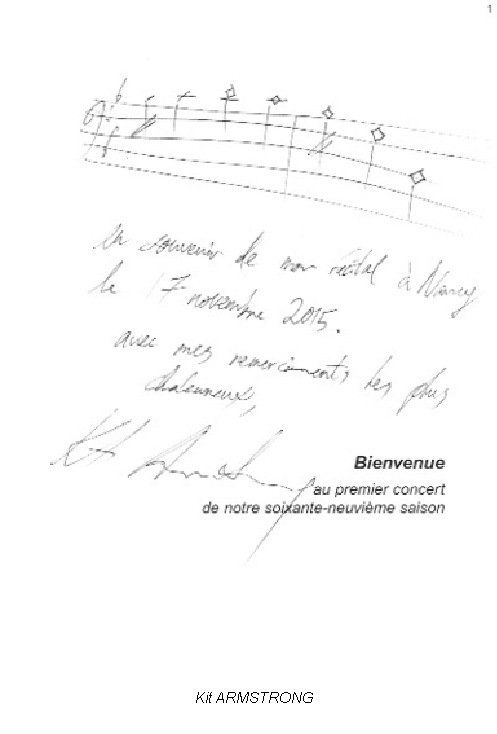 1
en souvenir de mon récital à Nancy
le 17 novembre 2015.
avec mes remerciements les plus
chaleureux,
Kit Armstrong
Bienvenue
au premier concert
de notre soixante-neuvième saison
Kit ARMSTRONG